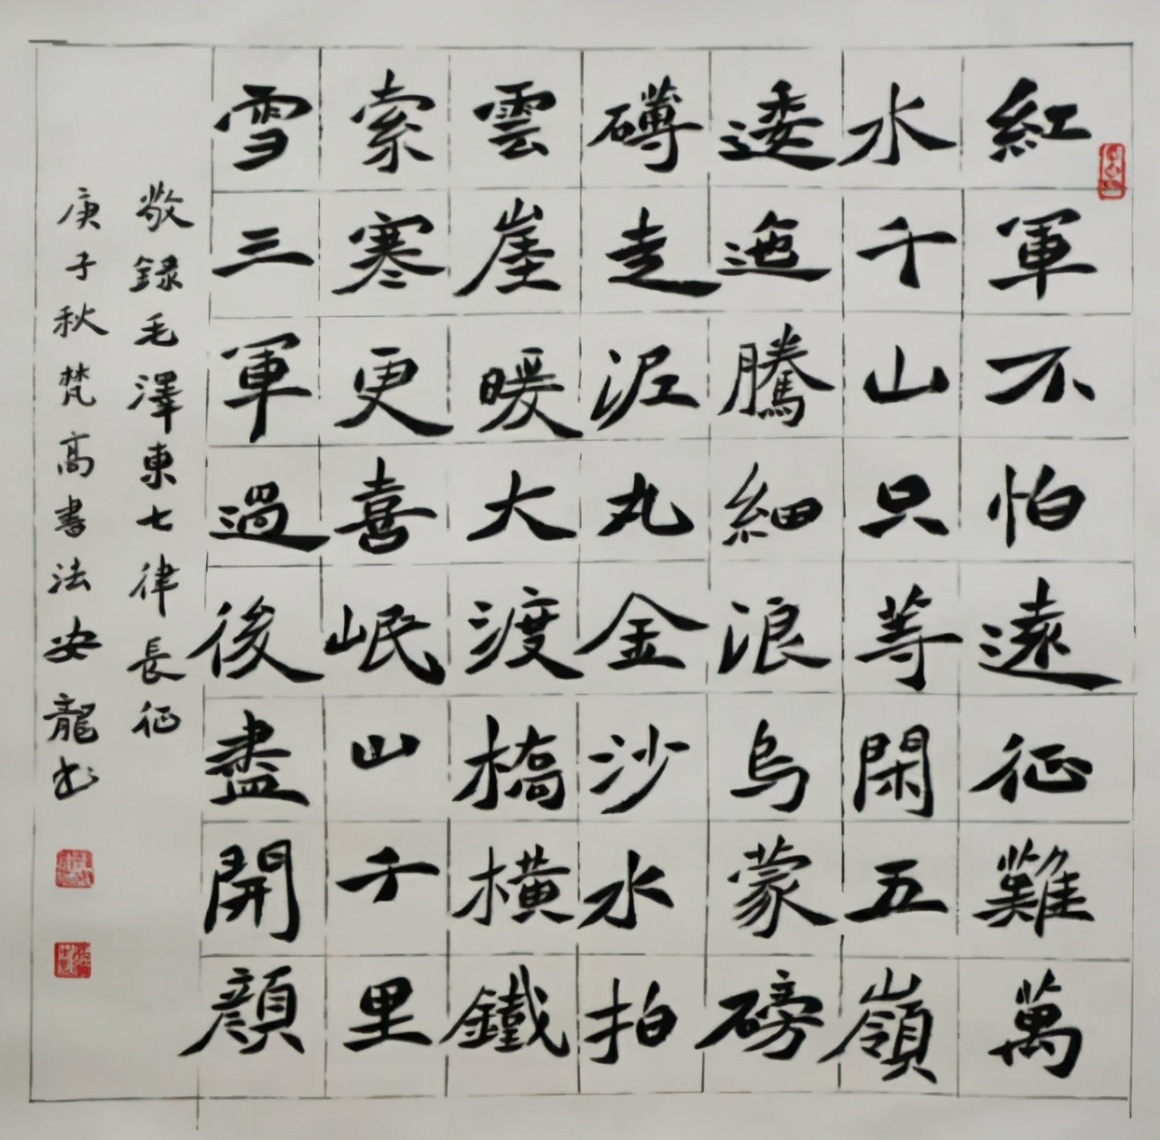 紅軍不怕遠征難萬
水千山只等閑五嶺
逶迤騰細浪烏蒙磅
礴走泥丸金沙水拍
雲崖暖大渡橋橫鐵
索寒更喜岷山千里
雪三軍過後盡開顏
敬錄毛澤東七律長征
庚子秋梵高書法安龍书